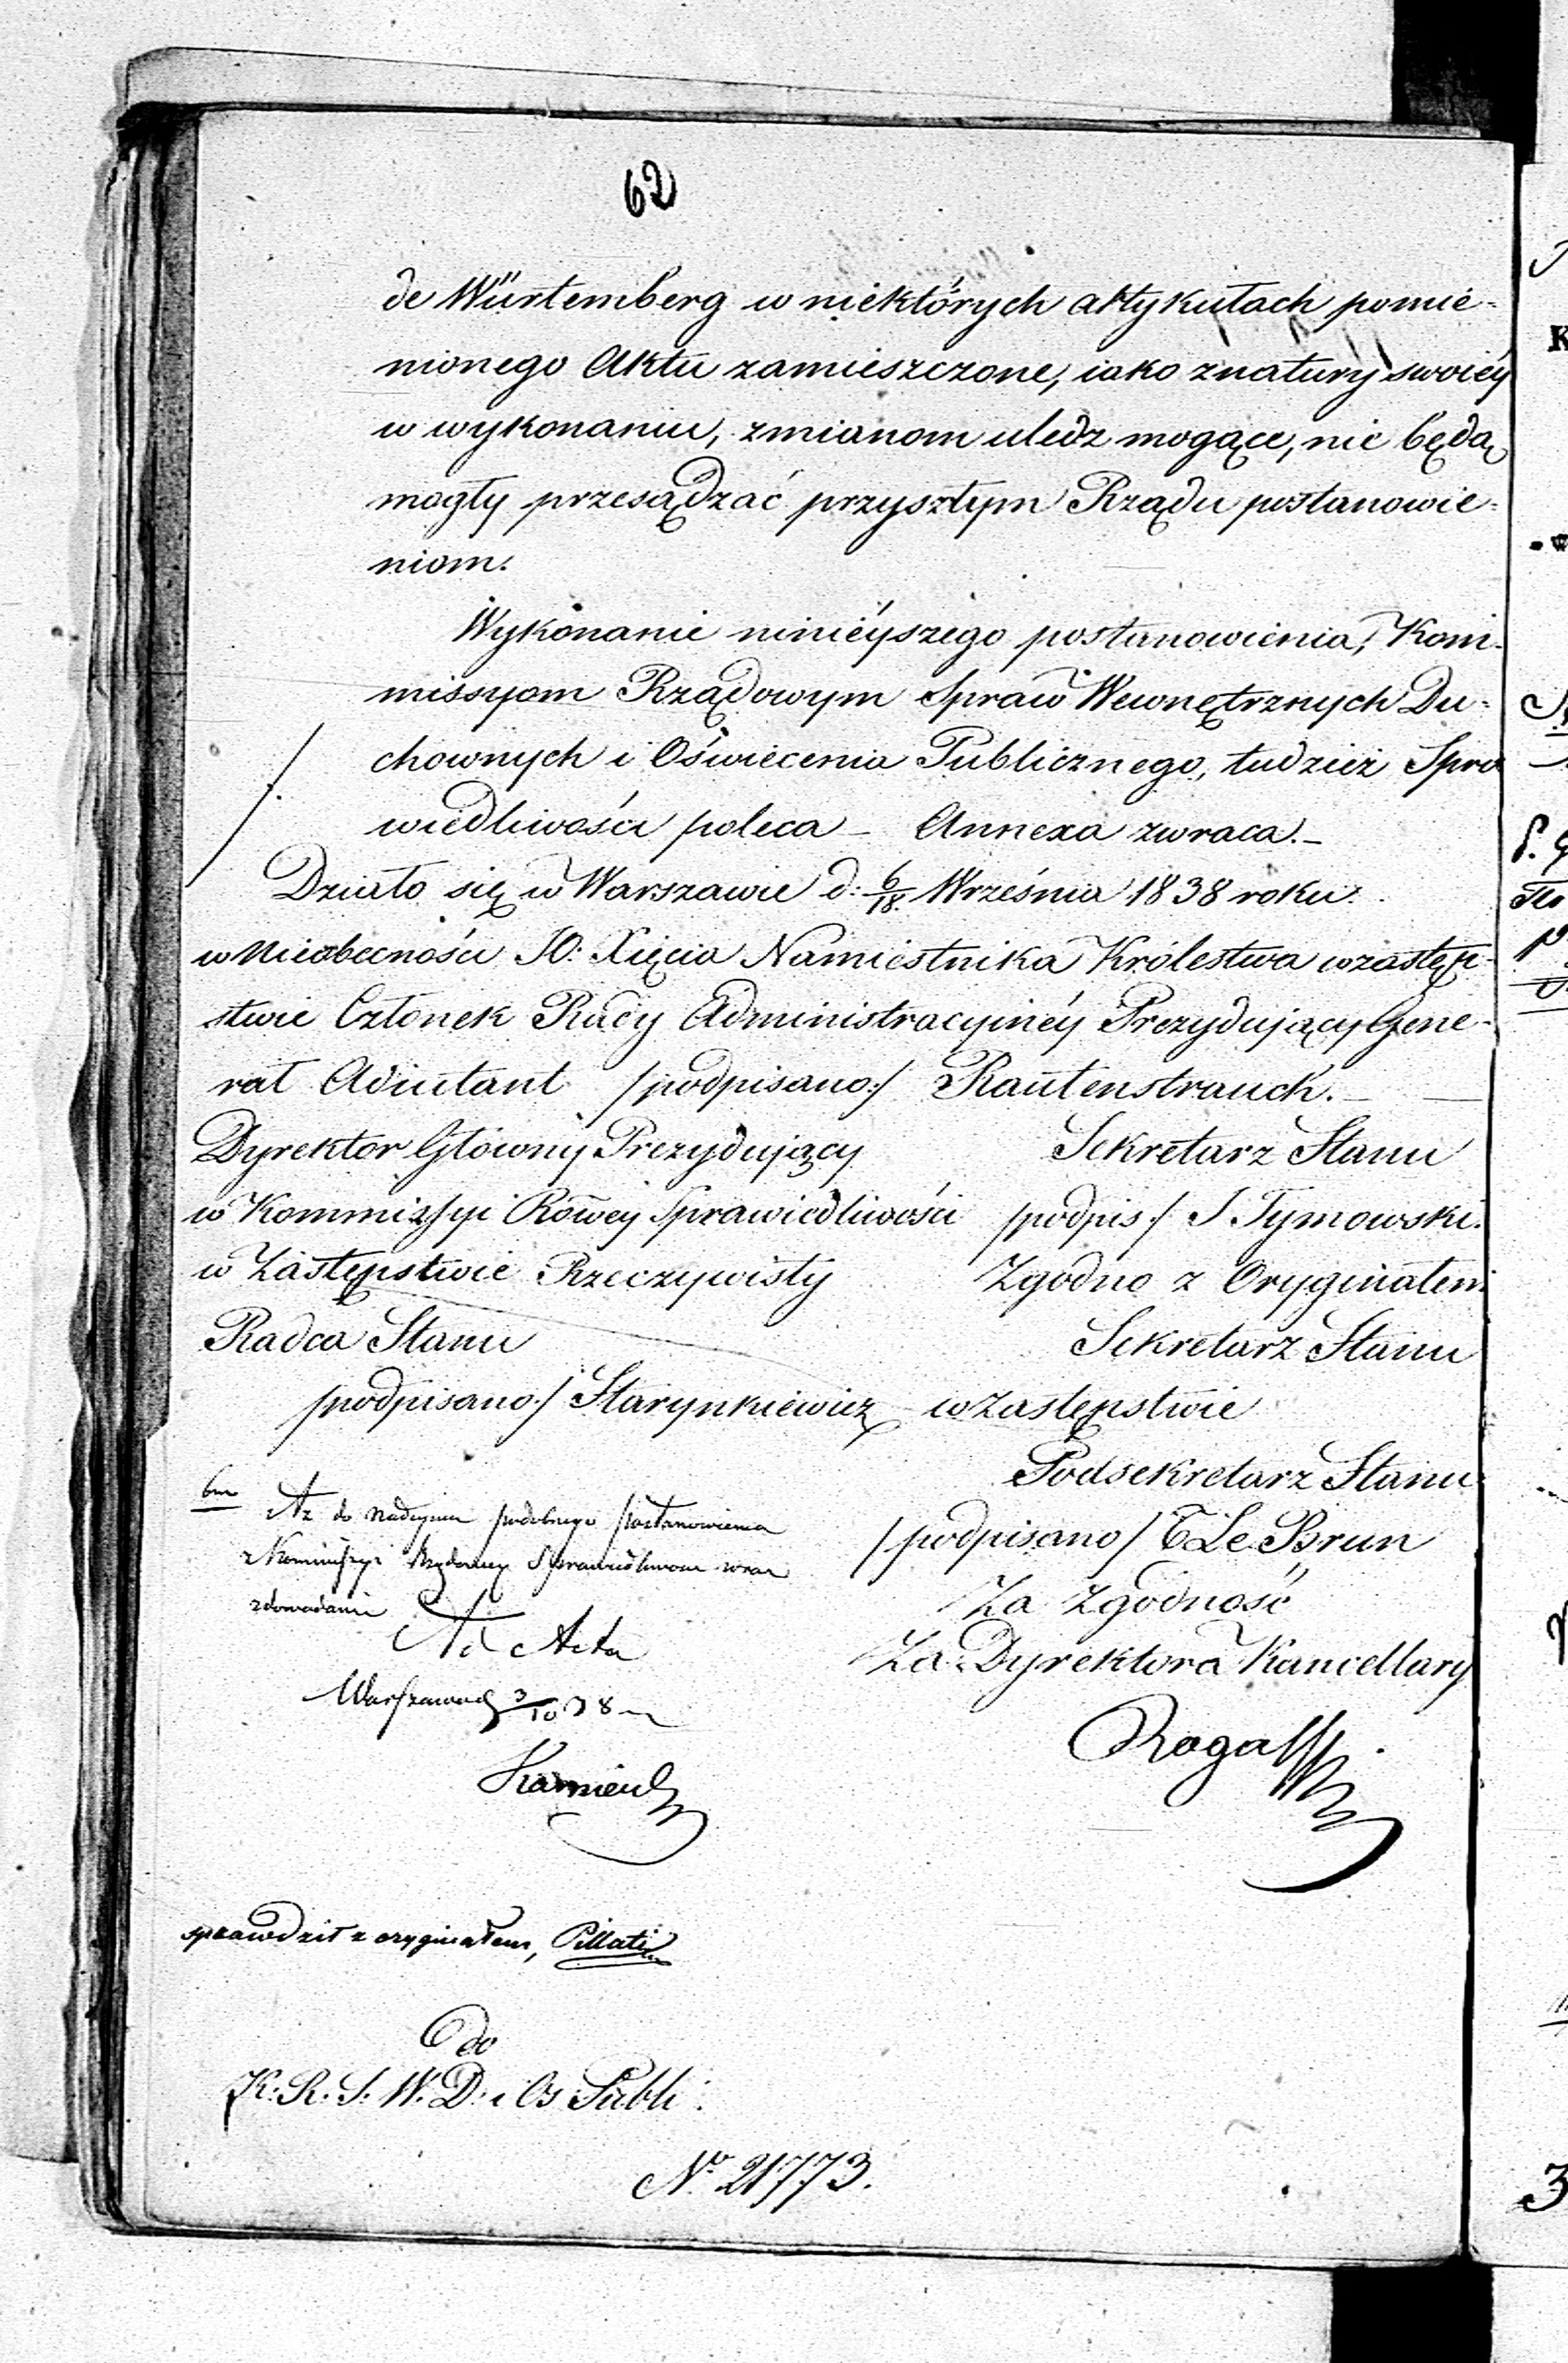 62
de Würtemberg w niektórych artykułach pomie-
nionego Aktu zamieszczone, iako z natury swoiéy
w wykonaniu, zmianom uledz mogące, nie będą
mogły przesądzać przyszłym Rządu postanowie-
niom.
Wykonanie ninieyszego postanowienia, Kom-
missyom Rządowym Spraw Wewnętrznych Du-
chownych i Oświecenia Publicznego, tudzież Spra
wiedliwości poleca – Annexa zwraca. –
Działo się w Warszawie d: 6/18. Września 1838 roku.
w Nieobecności JO: Xięcia Namiestnika Królestwa w zastęp-
stwie Członek Rady Administracyinéy Prezydujący Gene-
rał Adiutant /podpisano:/ Rautenstrauch. –
Dyrektor Główny Prezydujący
w Kommissyi Rowéy Sprawiedliwości
w Zastępstwie Rzeczywisty
Radca Stanu
/podpisano:/ Starynkiewicz
Sekretarz Stanu
/podpis:/ J Tymowski.
Zgodno z Oryginałem
Sekretarz Stanu
w Zastępstwie
Podsekretarz Stanu
/podpisano/ T Le Brun
Za Zgodność
Za Dyrektora Kancellary
Az do nadeyscia podobnego postanowienia
z Kommissyi Rządowey Sprawiedliwosci wraz
z dowodami
Ad Acta
Warszawa d 3/10 38
sprawdził z oryginałem, Pillati
do
K: R: S: W. D: i Os Publi:
No 21773.